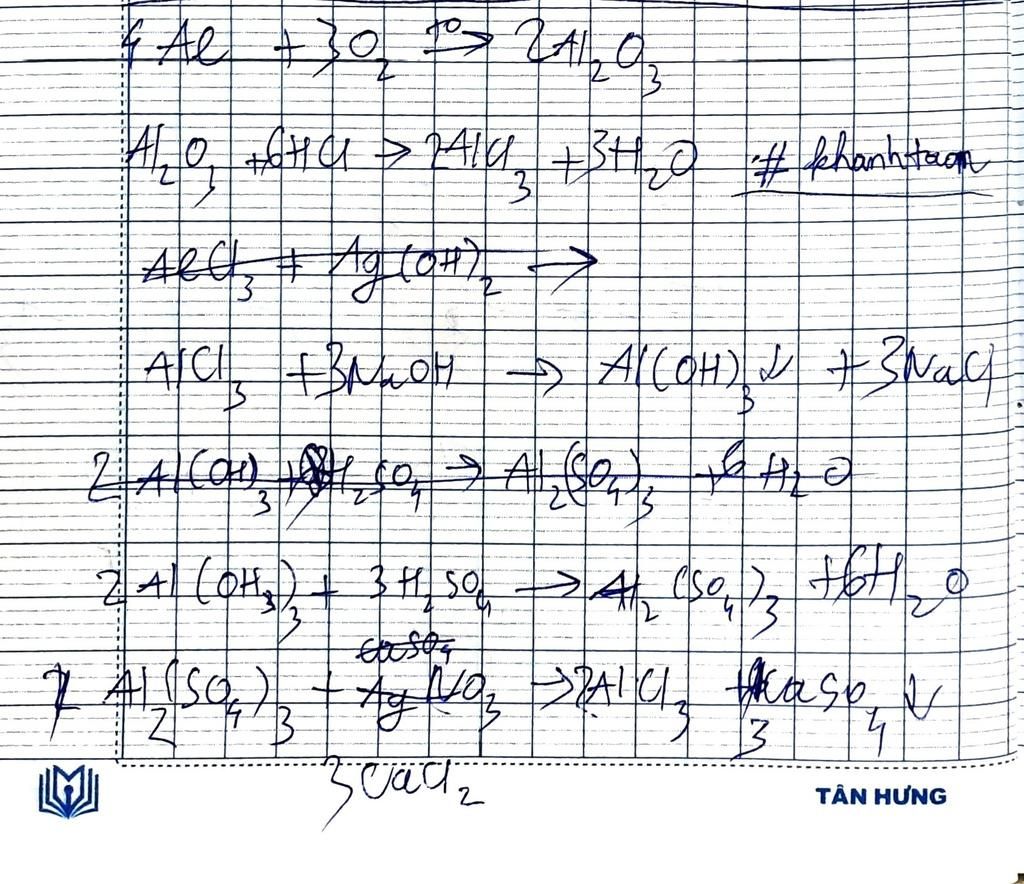 4Al + 3O2 t° → 2Al2O3
Al2O3 + 6HCl → 2AlCl3 + 3H2O # khanhtoan
AlCl3 + Ag(OH)2 →
AlCl3 + 3NaOH → Al(OH)3↓ + 3NaCl
2Al(OH)3 + H2SO4 → Al2(SO4)3 + 6H2O
2Al(OH3)3 + 3H2SO4 → Al2(SO4)3 + 6H2O
CaSO4
Al2(SO4)3 + AgNO3 → 2AlCl3 + 3CaSO4↓
3CaCl2
TÂN HƯNG